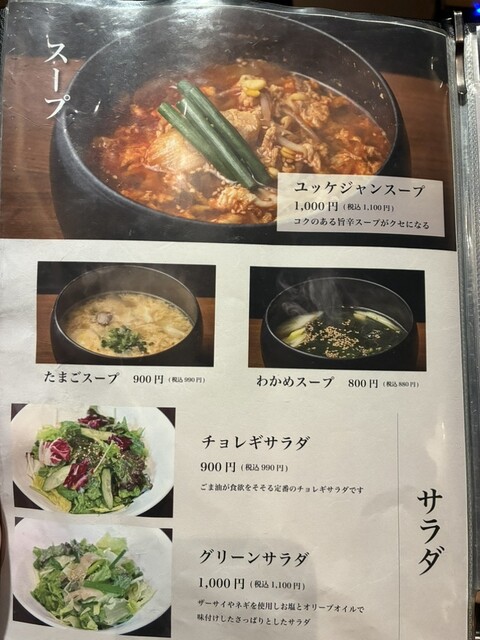 スープ
ユッケジャンスープ
1,000円(税込1,100円)
コクのある旨辛スープがクセになる
たまごスープ 900円(税込990円)
わかめスープ 800円(税込880円)
チョレギサラダ
900円(税込990円)
ごま油が食欲をそそる定番のチョレギサラダです
サラダ
グリーンサラダ
1,000円(税込1,100円)
ザーサイやネギを使用しお塩とオリーブオイルで
味付けしたさっぱりとしたサラダ